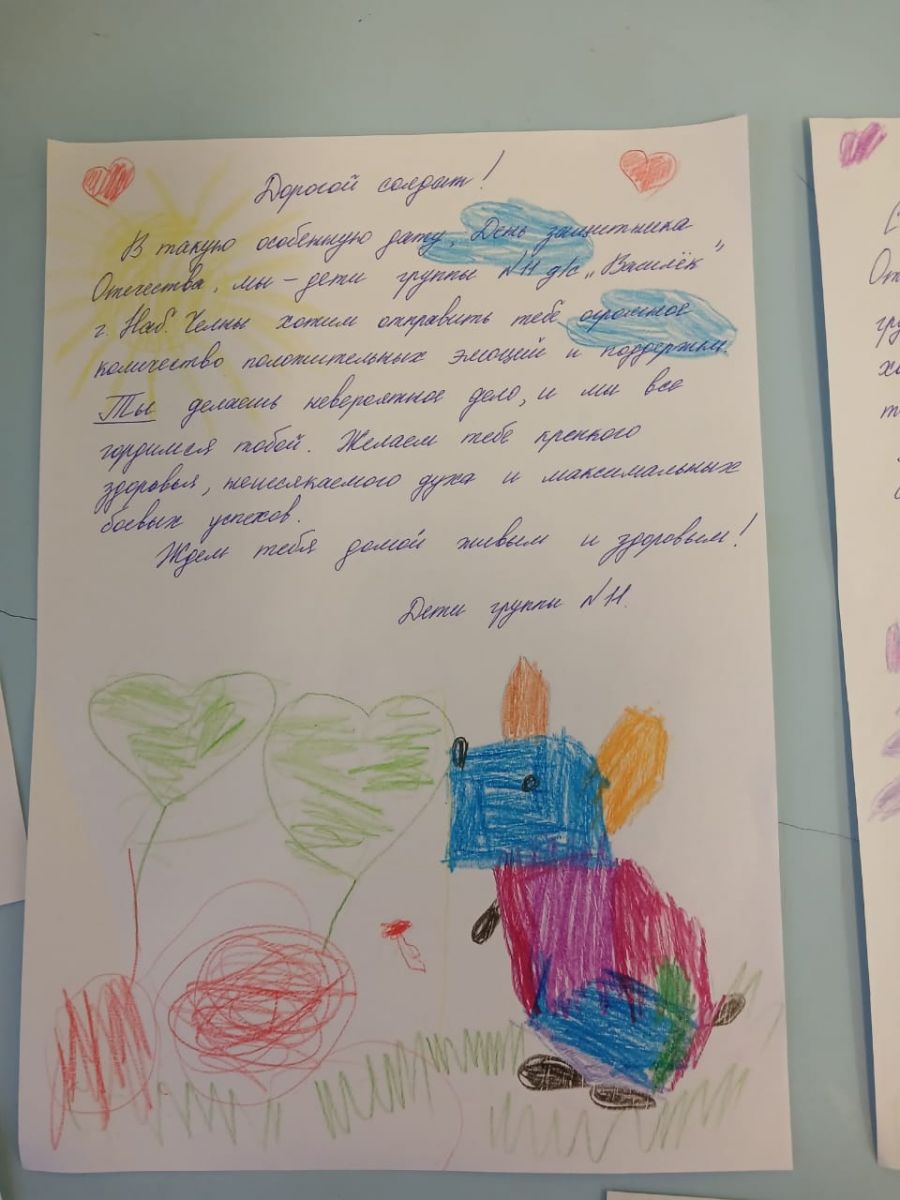 Дорогой солдат!
В такую особенную дату, День защитника
Отечества, мы - дети группы №11 д/с „Василёк"
г. Наб. Челны хотим отправить тебе огромное
количество положительных эмоций и поддержки.
Ты делаешь невероятное дело, и мы все
гордимся тобой. Желаем тебе крепкого
здоровья, неиссякаемого духа и максимальных
боевых успехов.
Ждем тебя домой живым и здоровым!
Дети группы №11.